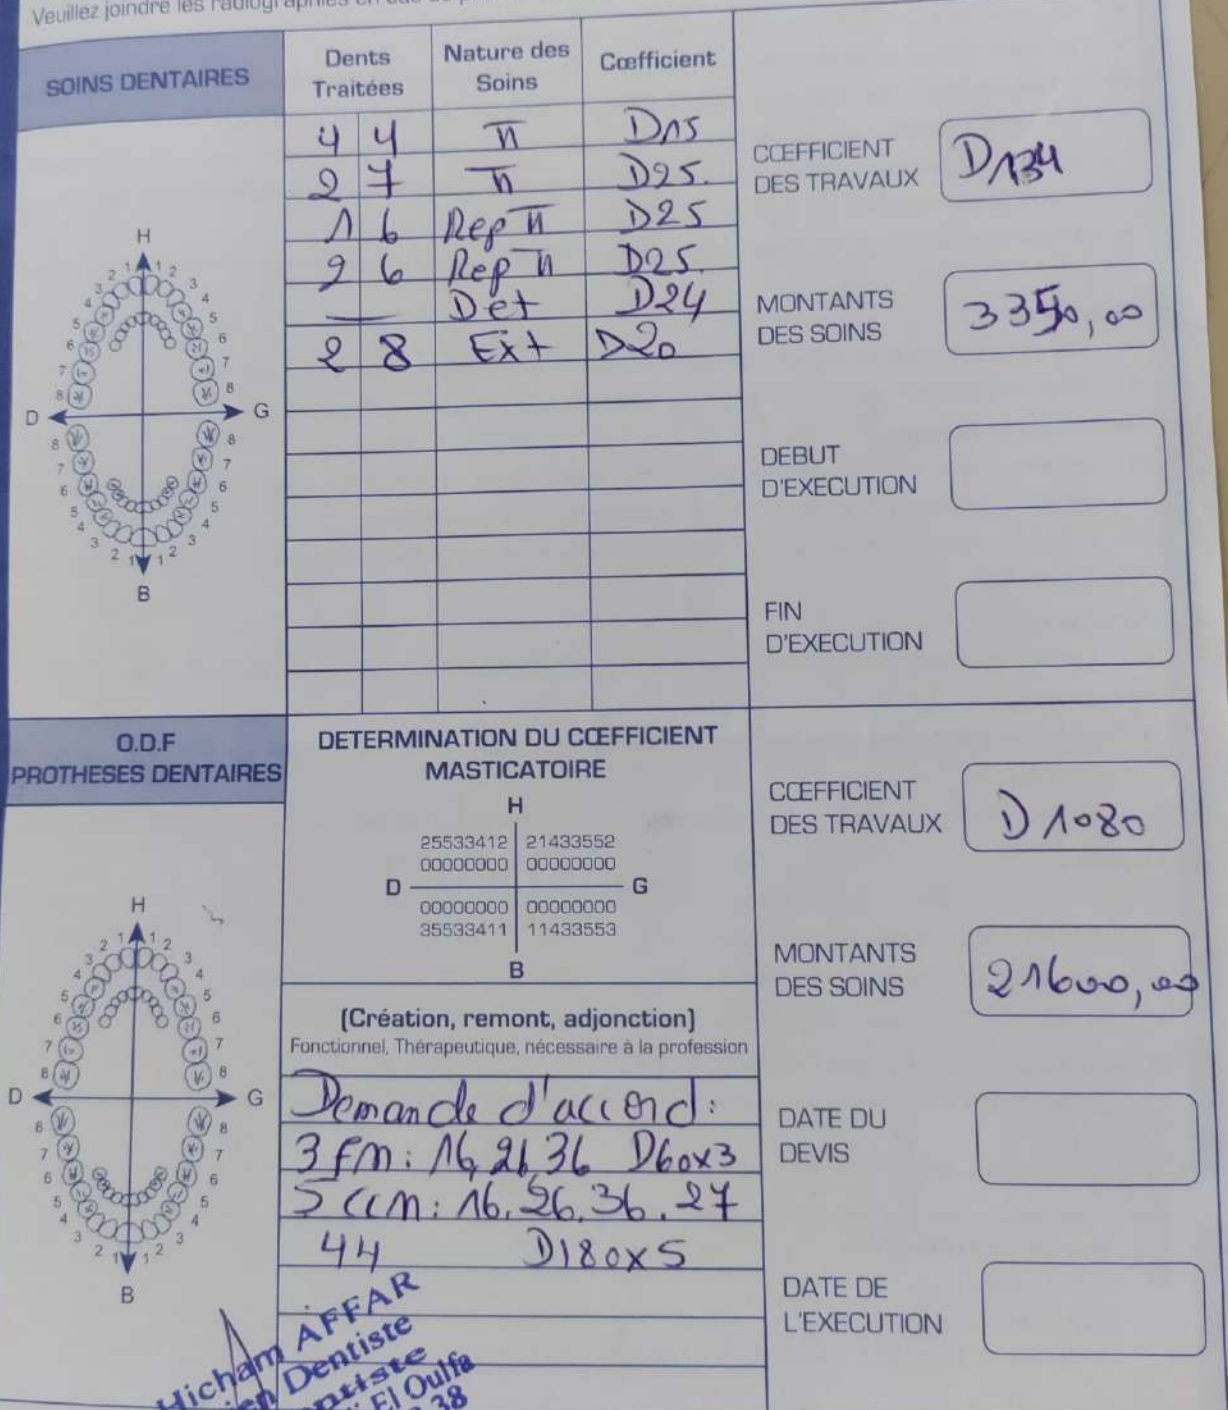 Veuillez joindre les radiographies en cas de
SOINS DENTAIRES
Dents Traitées
Nature des Soins
Cœfficient
4 4 π D15
2 7 π D25.
1 6 Rep π D25
2 6 Rep π D25.
— Det D24
2 8 Ext D20
H
D G
B
CŒFFICIENT DES TRAVAUX
D134
MONTANTS DES SOINS
3350,00
DEBUT D'EXECUTION
FIN D'EXECUTION
O.D.F
PROTHESES DENTAIRES
H
D G
B
DETERMINATION DU CŒFFICIENT
MASTICATOIRE
H
25533412 21433552
00000000 00000000
D G
00000000 00000000
35533411 11433553
B
(Création, remont, adjonction)
Fonctionnel, Thérapeutique, nécessaire à la profession
Demande d'accord:
3 fm: 16, 26, 36 D60x3
5 ccm: 16, 26, 36, 27
44 D180x5
CŒFFICIENT DES TRAVAUX
D 1080
MONTANTS DES SOINS
21600,00
DATE DU DEVIS
DATE DE L'EXECUTION
Hicham AFFAR
Dentiste
El Oulfa
38